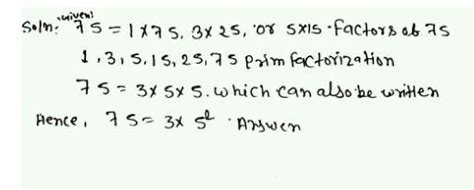 Soln: Given: 75 = 1x75, 3x25, or 5x15. Factors ob 75
1, 3, 5, 15, 25, 75 prim factorization
75 = 3x5x5. which can also be written
Hence, 75 = 3x 5² . Answer